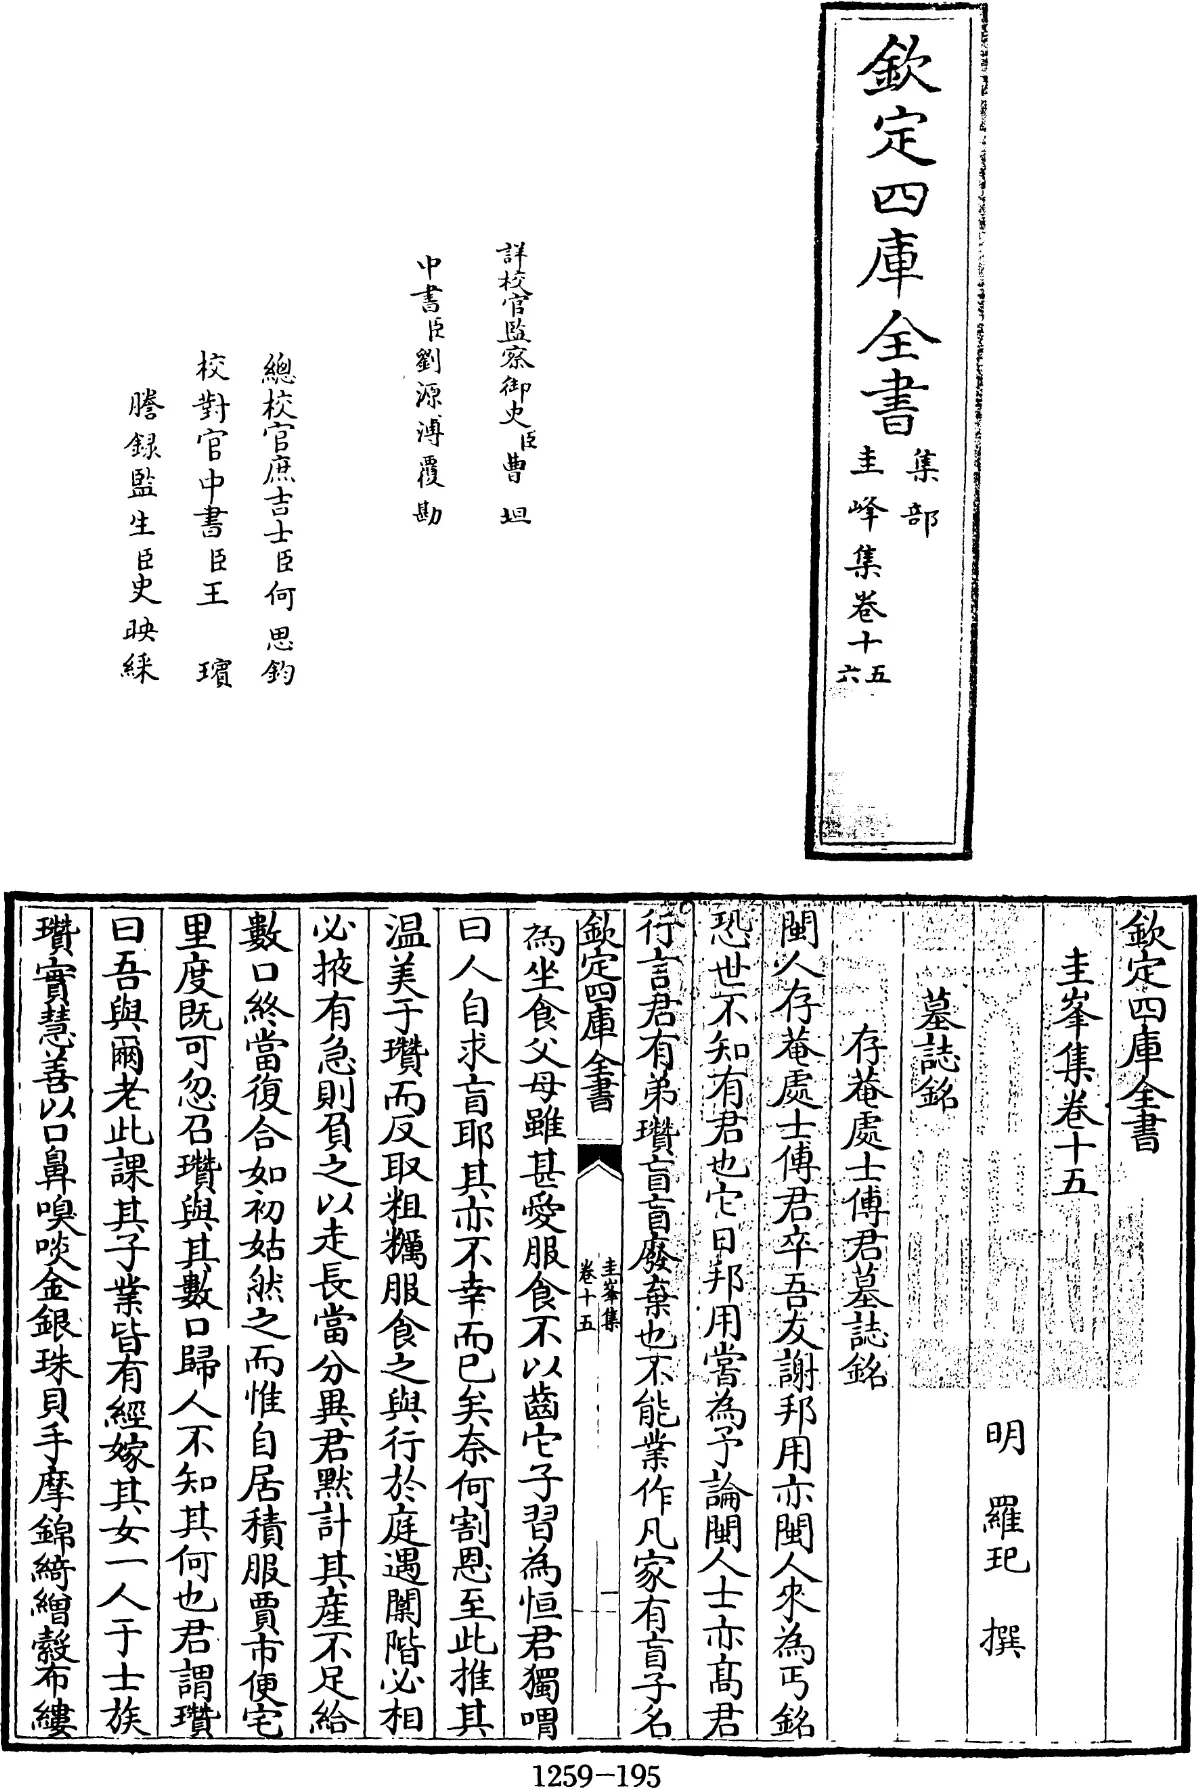 欽定四庫全書
集部
圭峰集卷十五六
詳校官監察御史臣曹坦
中書臣劉源溥覆勘
總校官庶吉士臣何思鈞
校對官中書臣王璸
謄錄監生臣史映綵
欽定四庫全書
圭峯集卷十五
明羅玘撰
墓誌銘
存菴處士傅君墓誌銘
閩人存菴處士傅君卒吾友謝邦用亦閩人來為丐銘
恐世不知有君也它日邦用嘗為予論閩人士亦髙君
行言君有弟瓚盲盲廢棄也不能業作凡家有盲子名
欽定四庫全書
圭峯集
卷十五
一
為坐食父母雖甚愛服食不以齒它子習為恒君獨喟
曰人自求盲耶其亦不幸而已矣奈何割恩至此推其
温美于瓚而反取粗糲服食之與行於庭遇闑階必相
必掖有急則負之以走長當分異君默計其産不足給
數口終當復合如初姑然之而惟自居積服賈市便宅
里度既可忽召瓚與其數口歸人不知其何也君謂瓚
曰吾與爾老此課其子業皆有經嫁其女一人于士族
瓚實慧善以口鼻嗅啖金銀珠貝手摩錦綺繒縠布縷
1259-195